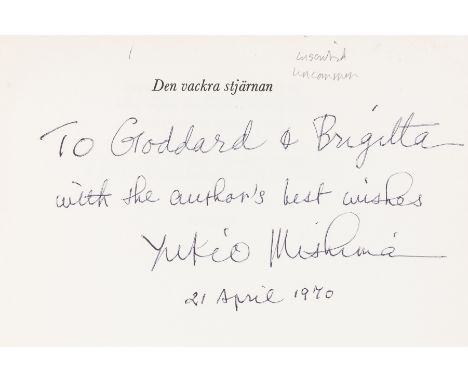 inscribed
uncommon
Den vackra stjärnan
To Goddard & Brigitta
with the author's best wishes
Yukio Mishima
21 April 1970